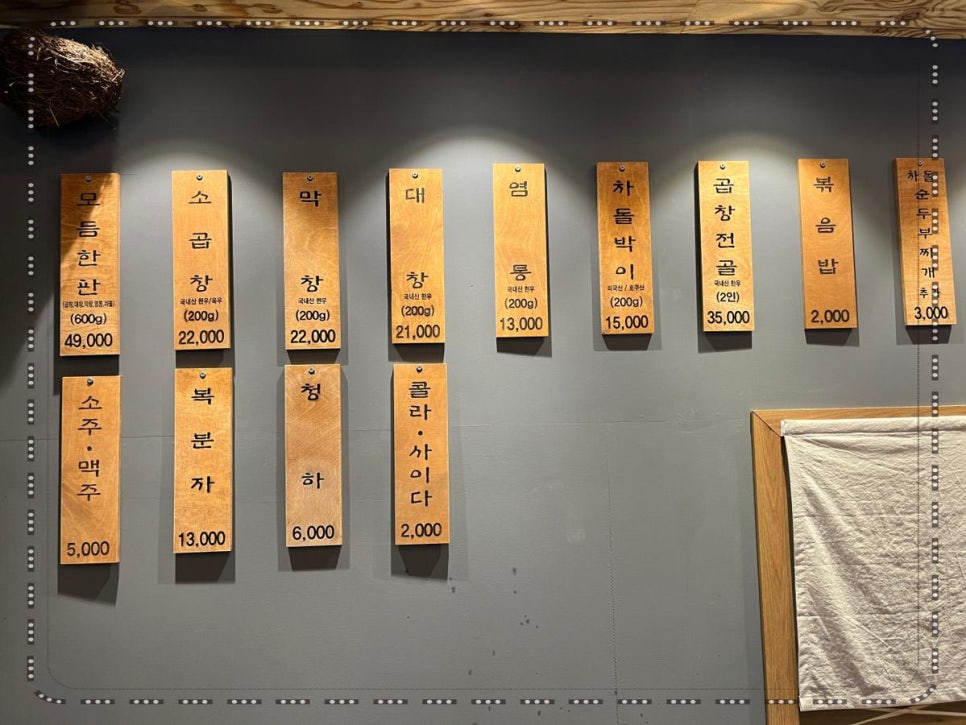 모듬한판
(600g)
49,000
소곱창
국내산 한우/육우
(200g)
22,000
막창
국내산 한우
(200g)
22,000
대창
국내산 한우
(200g)
21,000
염통
국내산 한우
(200g)
13,000
차돌박이
미국산 / 호주산
(200g)
15,000
곱창전골
국내산 한우
(2인)
35,000
볶음밥
2,000
차돌
순두부찌개
추가
3,000
소주·맥주
5,000
복분자
13,000
청하
6,000
콜라·사이다
2,000